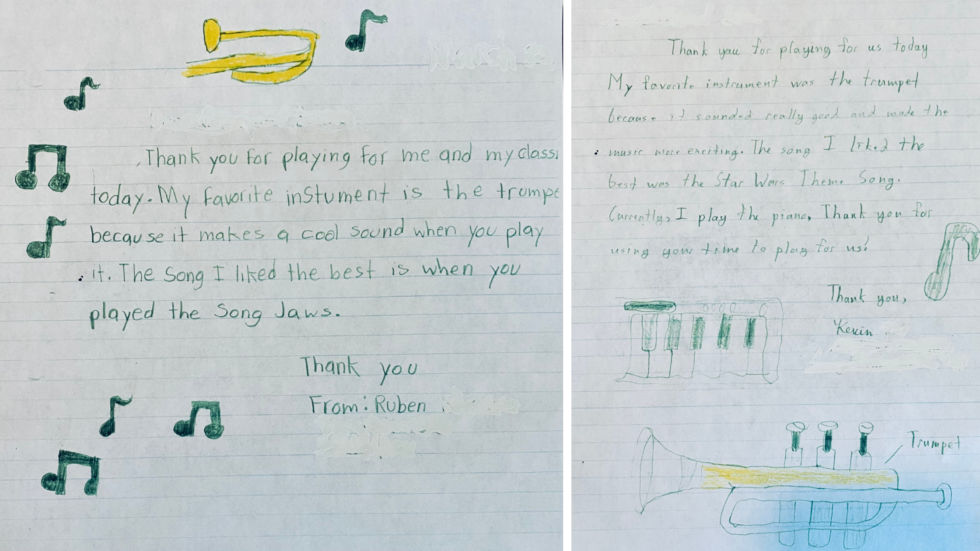 Thank you for playing for me and my class
today. My favorite instument is the trumpe
because it makes a cool sound when you play
it. The Song I liked the best is when you
played the Song Jaws.
Thank you
From: Ruben
Thank you for playing for us today
My favorite instrument was the trumpet
because it sounded really good and made the
music more exciting. The song I liked the
best was the Star Wars Theme Song.
Currently, I play the piano, Thank you for
using your time to play for us!
Thank you,
Kevin
Trumpet